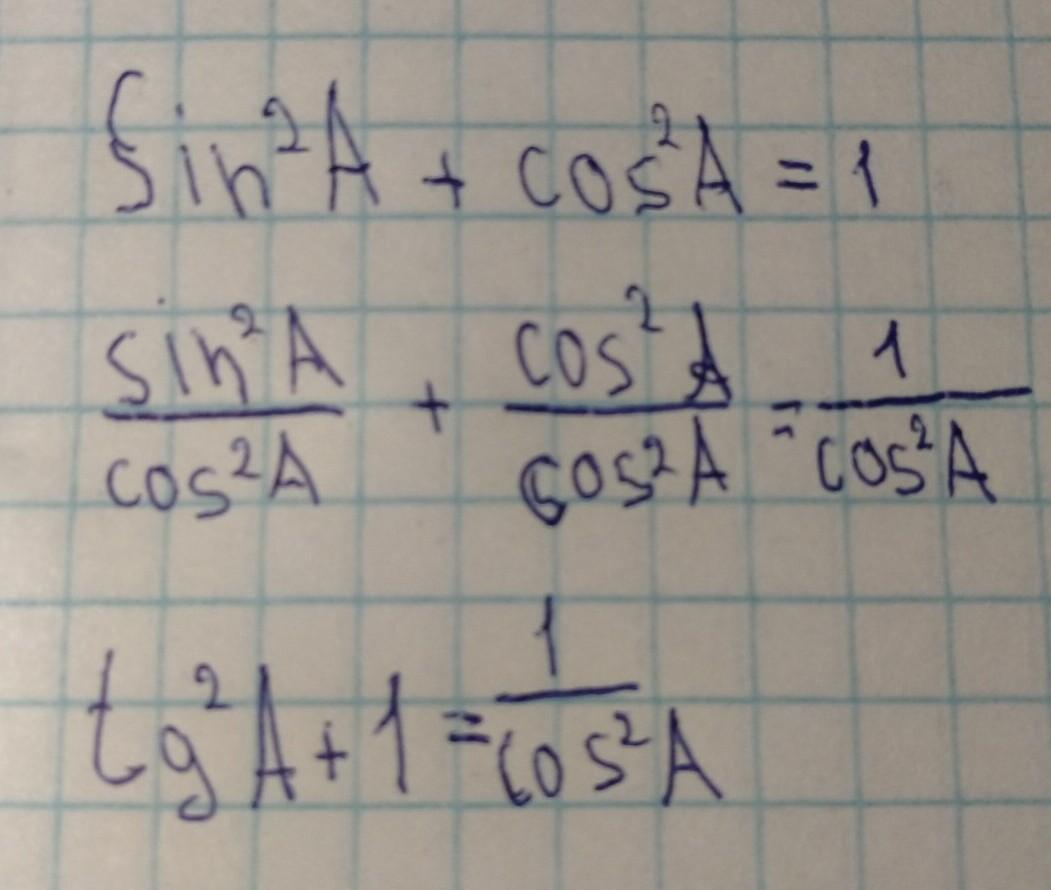 Sin²A + cos²A = 1
sin²A/cos²A + cos²A/cos²A = 1/cos²A
tg²A + 1 = 1/cos²A